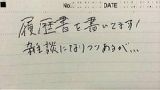 No.
DATE
履歴書を書いてます!
雑談になりつつあるが…